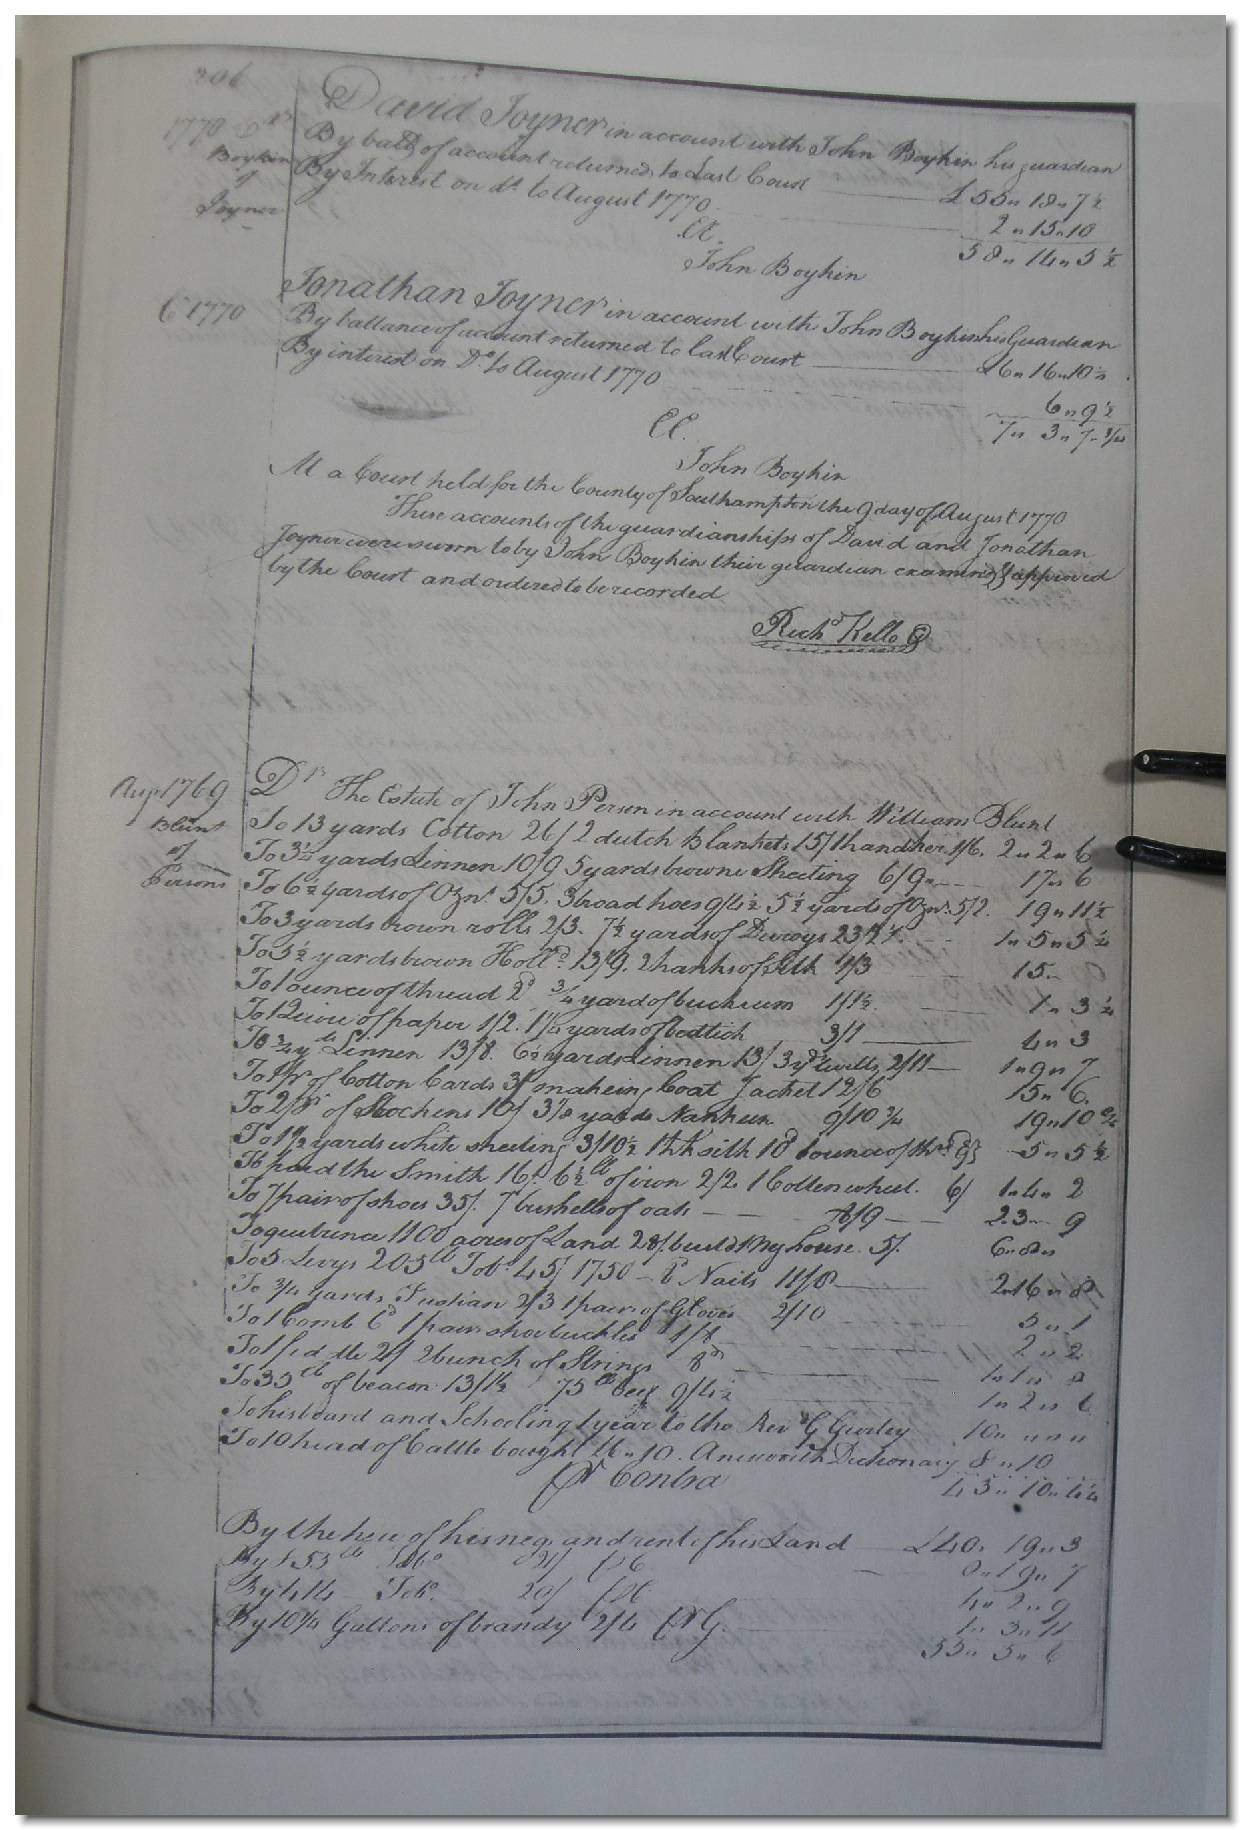 206
David Joyner in account with John Boykin his guardian
1770 Dr
Boykin
of
Joyner
By balle of account returned to Last Court £55" 18" 7½
By Interest on do to August 1770 2" 15" 10
EE. 58" 14" 5½
John Boykin
Jonathan Joyner in account with John Boykin his Guardian
Cr 1770
By ballance of account returned to last Court £6" 16" 10½
By interest on Do to August 1770 6" 9½
EE. 7" 3" 7
John Boykin
At a Court held for the County of Southampton the 9 day of August 1770
These accounts of the guardianships of David and Jonathan
Joyner were sworn to by John Boykin their guardian examined & approved
by the Court and ordered to be recorded
Richd Kello
Aug 1769
Blunt
of
Persons
Drs The Estate of John Person in account with William Blunt
To 13 yards Cotton 26/ 2 dutch Blankets 15/ 1 handker. 1/6. 2" 2" 6
To 3½ yards Linnen 10/9 5 yards browne Sheeting 6/9 17" 6
To 6½ yards of Ozns 5/5. 3 broad hoes 9/4½ 5½ yards of Ozns 5/2. 19" 11½
To 3 yards brown rolls 2/3. 7½ yards of Duroys 23/2¼. 1" 5" 5¼
To 5½ yards brown Holld 13/9. 2 hanks of silk 1/3 15"
To 1 ounce of thread 2d ¾ yard of buckrum 1/1½. 1" 3½
To 1 Quire of paper 1/2. 1¼ yards of bedtick 3/1 4" 3
To yds Linnen 13/8. 6½ yards Linnen 13/ 3 yds twills 2/11 1" 9" 7
To 1 pr of Cotton Cards 3/ makeing Coat Jacket 12/6 15" 6.
To 2 prs of Stockens 10/ 3⅞ yards Nankeen 9/10¾ 19" 10¾
To 1½ yards white sheeting 3/10½ 1 hk silk 10d 1 ounce of thrd 9d 5" 5½
To paid the Smith 16/. 6½ lb of iron 2/2. 1 Cotten wheel. 6/ 1" 4" 2
To 7 pair of shoes 35/. 7 bushells of oats 8/9 2" 3" 9
To quitrence 1100 acres of Land 28/. build Myhouse. 5/. 6" 8"
To 5 Levys 205 lb Tobo 45/ 1750 8d Nails 11/8 2" 16" 8
To ¾ yards Fustian 2/3 1 pair of Gloves 2/10 5" 1
To 1 Comb 6d 1 pair shoe buckles 1/8 2" 2
To 1 fiddle 2 bunch of Strings 8d 1" 1" 8
To 35 lb of beacon 13/1½ 75 lb beef 9/4½ 1" 2" 6
To his board and Schooling 1 year to the Revd G Gurley 10" " "
To 10 head of Cattle bought £6" 10. Answorth Dictionary 8" 10
Pr Contra 43" 10" 4¼
By the hire of his neg. and rent of his Land £40" 19" 3
By 453 lb Tobo 21/ PrC 8" 19" 7
By 414 Tobo 20/ PrC 4" 2" 9
By 10¼ Gallons of brandy 2/4 Pr G. 1" 3" 11
55" 5" 6